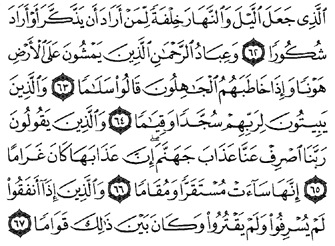 ٱلَّذِى جَعَلَ ٱلَّيْلَ وَٱلنَّهَارَ خِلْفَةً لِّمَنْ أَرَادَ أَن يَذَّكَّرَ أَوْ أَرَادَ
شُكُورًا ٦٢ وَعِبَادُ ٱلرَّحْمَٰنِ ٱلَّذِينَ يَمْشُونَ عَلَى ٱلْأَرْضِ
هَوْنًا وَإِذَا خَاطَبَهُمُ ٱلْجَٰهِلُونَ قَالُوا۟ سَلَٰمًا ٦٣ وَٱلَّذِينَ
يَبِيتُونَ لِرَبِّهِمْ سُجَّدًا وَقِيَٰمًا ٦٤ وَٱلَّذِينَ يَقُولُونَ
رَبَّنَا ٱصْرِفْ عَنَّا عَذَابَ جَهَنَّمَ ۖ إِنَّ عَذَابَهَا كَانَ غَرَامًا
٦٥ إِنَّهَا سَآءَتْ مُسْتَقَرًّا وَمُقَامًا ٦٦ وَٱلَّذِينَ إِذَآ أَنفَقُوا۟
لَمْ يُسْرِفُوا۟ وَلَمْ يَقْتُرُوا۟ وَكَانَ بَيْنَ ذَٰلِكَ قَوَامًا ٦٧